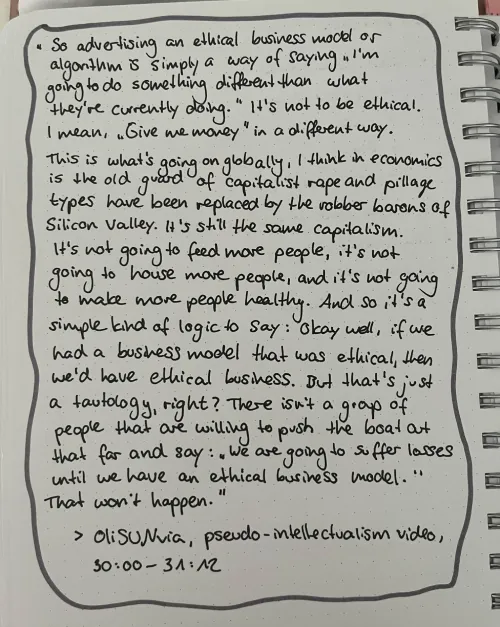 „ So advertising an ethical business model or
algorithm is simply a way of saying „I'm
going to do something different than what
they're currently doing." It's not to be ethical.
I mean, „Give me money" in a different way.
This is what's going on globally, I think in economics
is the old guard of capitalist rape and pillage
types have been replaced by the robber barons of
Silicon Valley. It's still the same capitalism.
It's not going to feed more people, it's not
going to house more people, and it's not going
to make more people healthy. And so it's a
simple kind of logic to say: Okay well, if we
had a business model that was ethical, then
we'd have ethical business. But that's just
a tautology, right? There isn't a group of
people that are willing to push the boat out
that far and say: „We are going to suffer losses
until we have an ethical business model."
That won't happen."
> OliSUNvia, pseudo-intellectualism video,
30:00 – 31:12